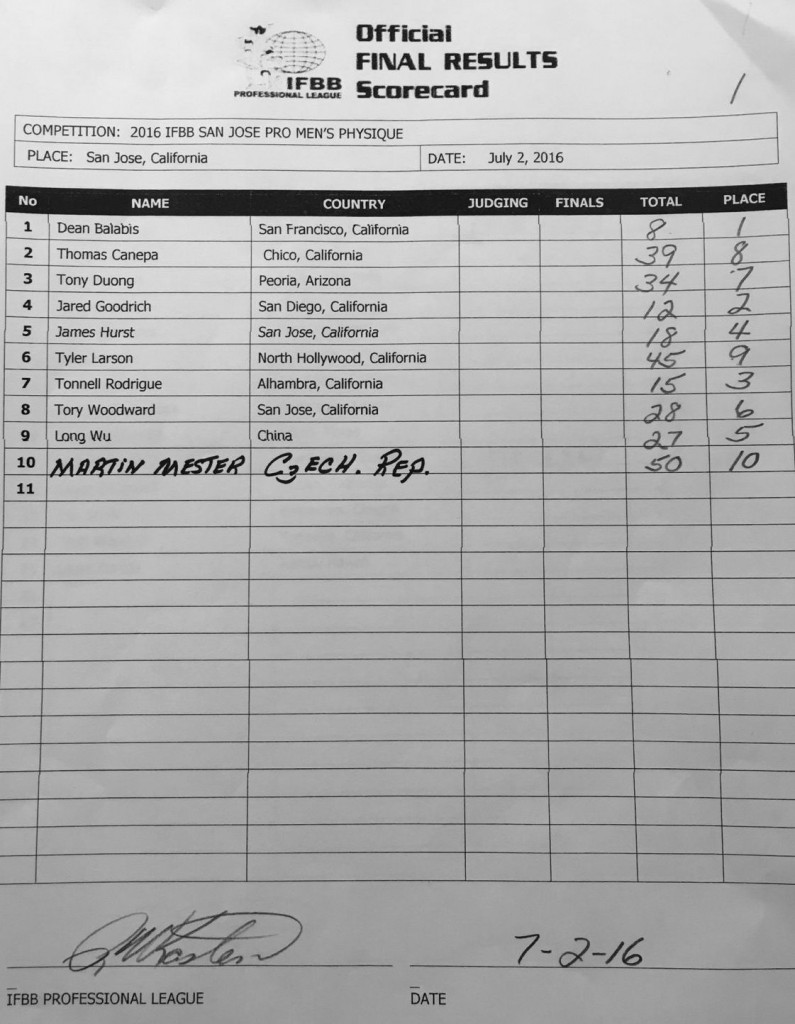 Official
FINAL RESULTS
IFBB
PROFESSIONAL LEAGUE
Scorecard
1
COMPETITION: 2016 IFBB SAN JOSE PRO MEN'S PHYSIQUE
PLACE: San Jose, California DATE: July 2, 2016
No NAME COUNTRY JUDGING FINALS TOTAL PLACE
1 Dean Balabis San Francisco, California 8 1
2 Thomas Canepa Chico, California 39 8
3 Tony Duong Peoria, Arizona 34 7
4 Jared Goodrich San Diego, California 12 2
5 James Hurst San Jose, California 18 4
6 Tyler Larson North Hollywood, California 45 9
7 Tonnell Rodrigue Alhambra, California 15 3
8 Tory Woodward San Jose, California 28 6
9 Long Wu China 27 5
10 MARTIN MESTER CZECH. REP. 50 10
11
7-2-16
IFBB PROFESSIONAL LEAGUE DATE